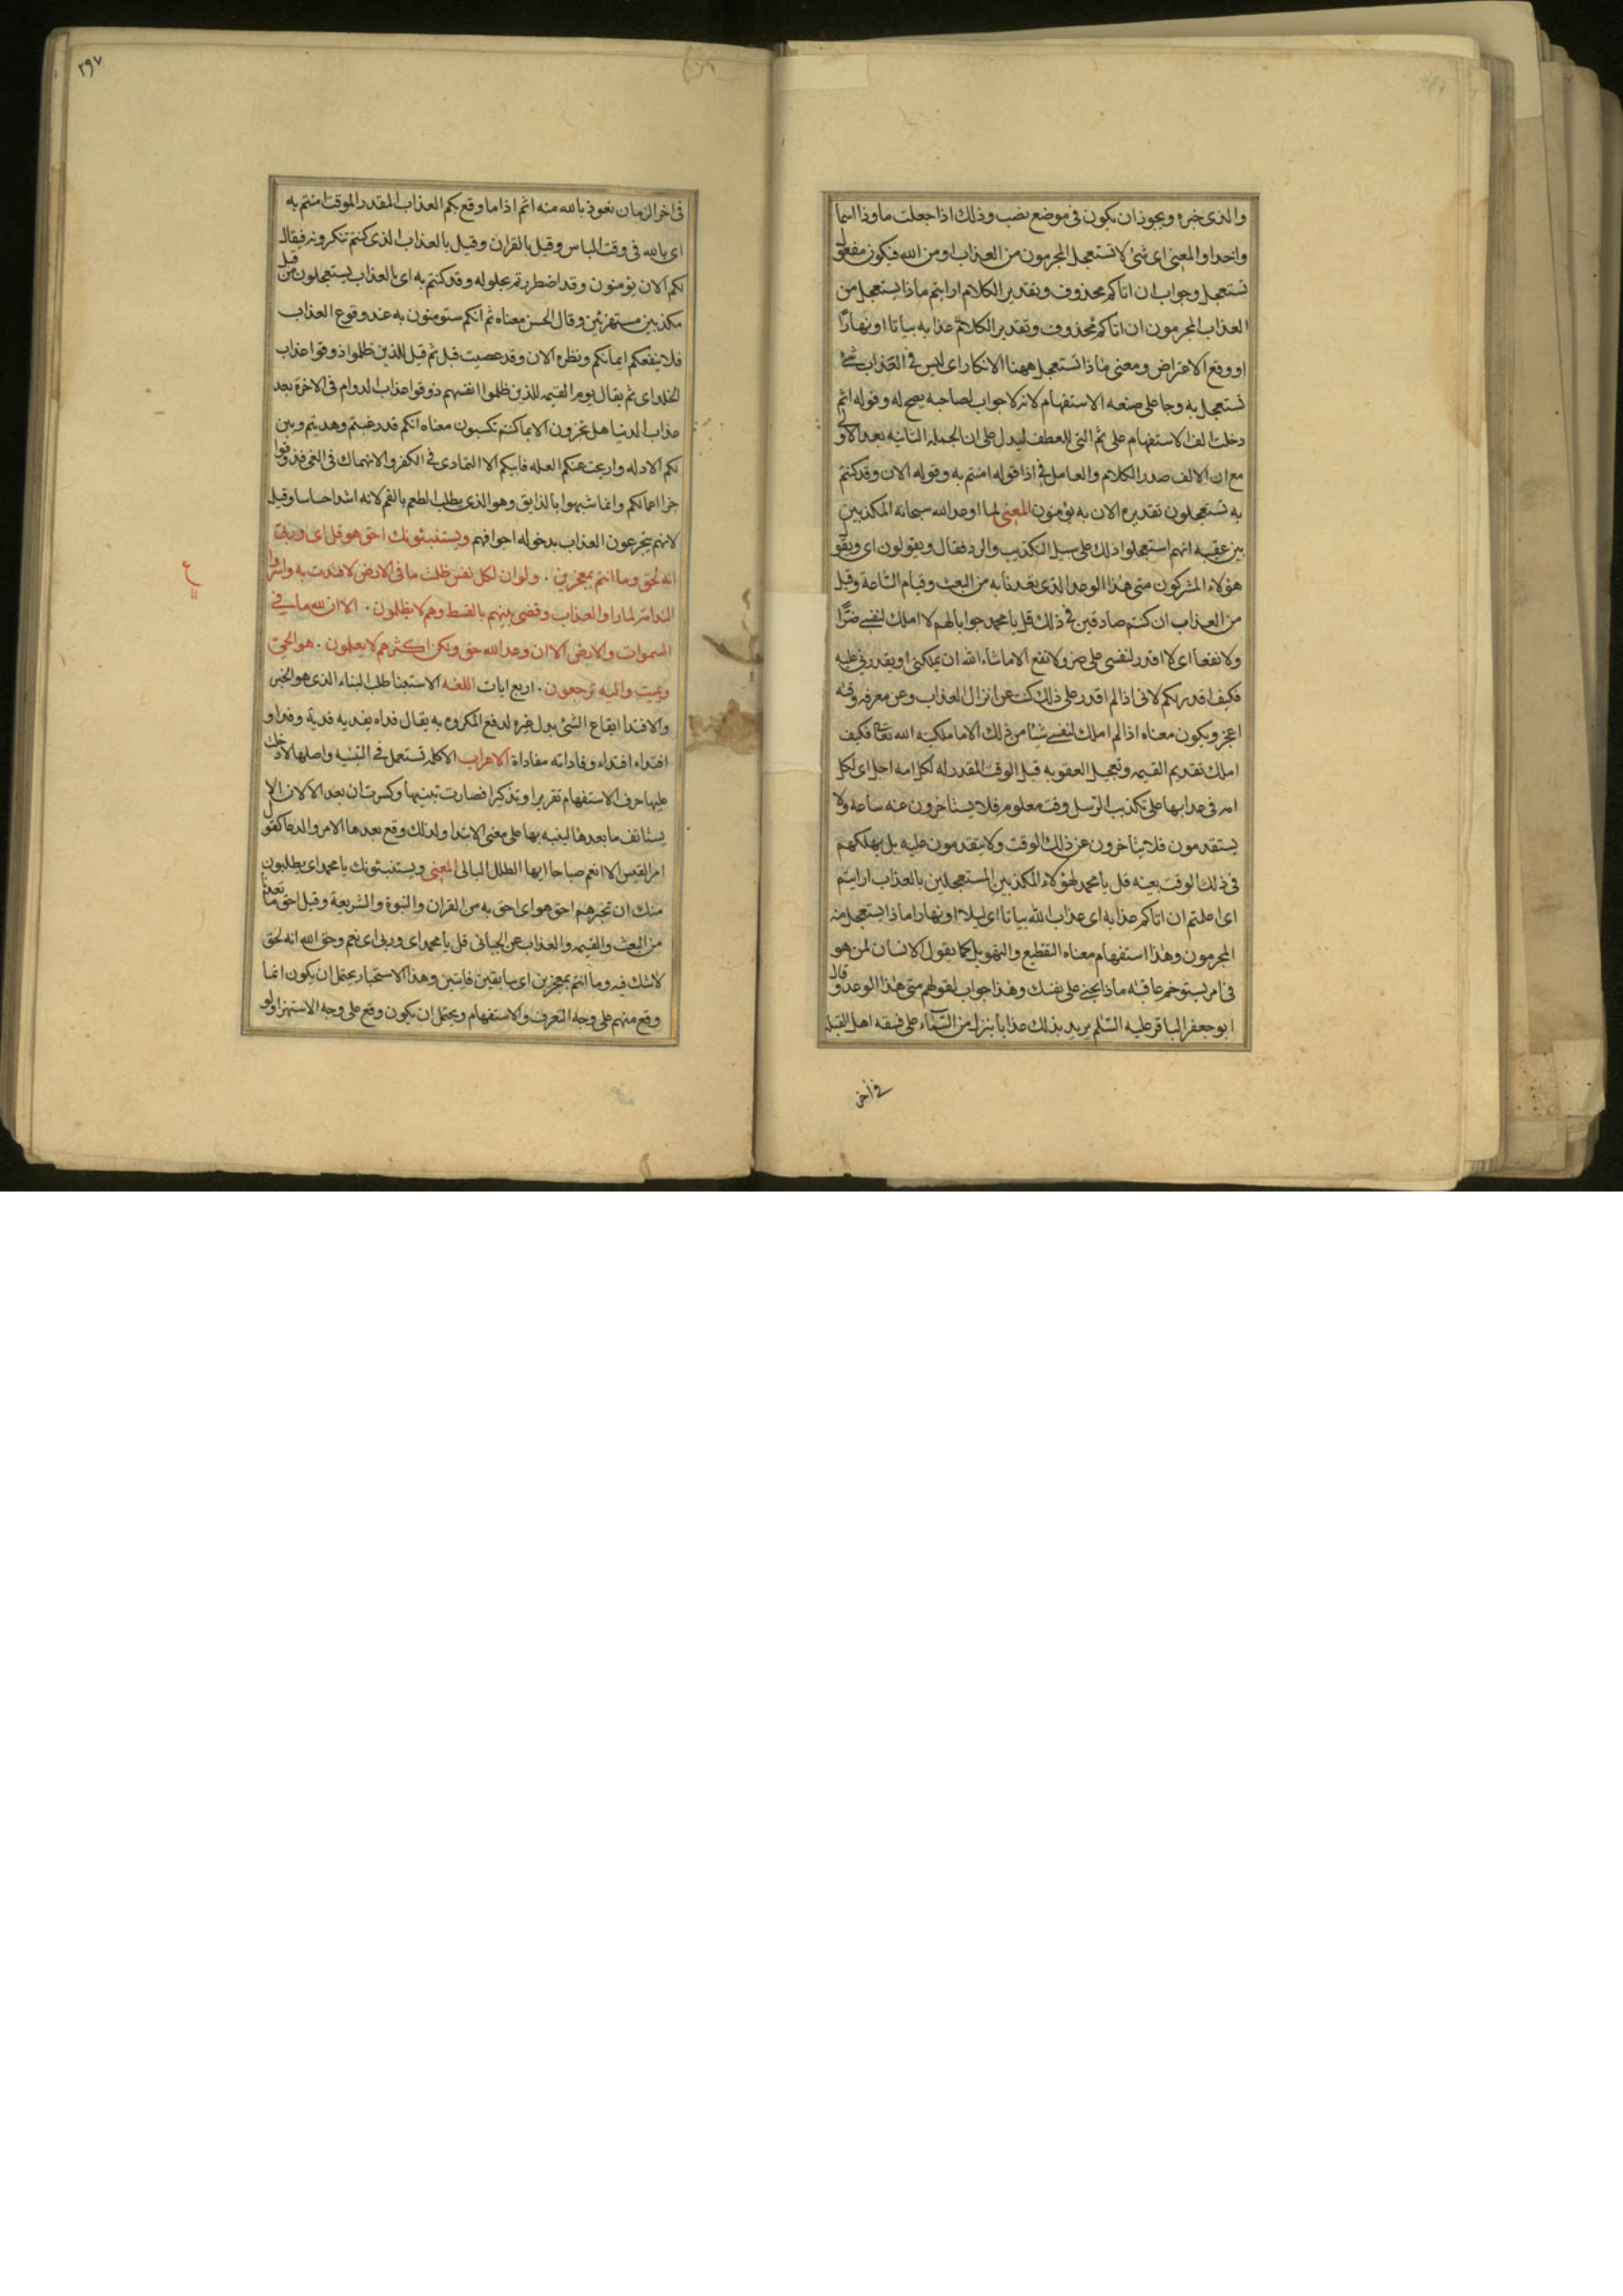 والذى خبره ويجوز ان يكون فى موضع نصب وذلك اذا جعلت ما وذا اسما
واحدا والمعنى اى شئ لا تستعجل المجرمون من العذاب او من الله فيكون مفعول
تستعجل وجواب ان اتاكم محذوف وتقدير الكلام ارايتم ماذا يستعجل من
العذاب المجرمون ان اتاكم محذوف وتقدير الكلام عذابه بياتا او نهارًا
او وقع الاعتراض ومعنى ماذا تستعجل ههنا الانكار اى ليس فى العذاب شئ
تستعجل به وجا على صنعه الاستفهام لانه لا جواب لصاحبه يصح له وقوله اثم
دخلت الف الاستفهام على ثم التى للعطف ليدل على ان الجمله الثانيه بعد الاولى
مع ان الالف صدر الكلام والعامل فى اذا قوله امنتم به وقوله الان وقد كنتم
به تستعجلون تقديره الان به تؤمنون المعنى لما اوعد الله سبحانه المكذبين
بين عقيبه انهم استعجلوا ذلك على سبيل التكذيب والرد فقال ويقولون اى ويقو
هؤلاء المشركون متى هذا الوعد الذى يعدنا به من البعث وقيام الساعة وقيل
من العذاب ان كنتم صادقين فى ذلك قل يا محمد جوابا لهم لا املك لنفسى ضرًّا
ولا نفعا اى لا اقدر لنفسى على ضر ولا نفع الا ما شاء الله ان يملكنى او يقدرنى عليه
فكيف اقدر لكم لانى اذا لم اقدر على ذلك كنت عن انزال العذاب وعن معرفه وقته
اعجز ويكون معناه اذا لم املك لنفسى شيئا من ذلك الا ما ملكنيه الله تعالى فكيف
املك تقديم القيمه وتعجيل العقوبه قبل الوقت المقدر له لكل امه اجل اى لكل
امه فى عذابها على تكذيب الرسل وقت معلوم فلا يستاخرون عنه ساعه ولا
يستقدمون فلا يتاخرون عن ذلك الوقت ولا يتقدمون عليه بل يهلكهم
فى ذلك الوقت بعينه قل يا محمد لهؤلاء المكذبين المستعجلين بالعذاب ارايتم
اى اعلمتم ان اتاكم عذابه اى عذاب الله بياتا اى ليلا او نهارا ماذا يستعجل منه
المجرمون وهذا استفهام معناه التقطيع والتهويل كما يقول الانسان لمن هو
فى امر يستوخم عاقبته ماذا تجنى على نفسك وهذا جواب لقولهم متى هذا الوعد وقال
ابو جعفر الباقر عليه السلم يريد بذلك عذابا ينزل من السماء على فسقه اهل القبله
فى آخر
٢٩٧
فى اخر الزمان نعوذ بالله منه اثم اذا ما وقع بكم العذاب المقدر الموقت امنتم به
اى بالله فى وقت الباس وقيل بالقران وقيل بالعذاب الذى كنتم تنكرونه فيقال
لكم الان تؤمنون وقد اضطررتم لحلوله وقد كنتم به اى بالعذاب يستعجلون من قبل
مكذبين مستهزئين وقال الحسن معناه ثم انكم ستومنون به عند وقوع العذاب
فلا ينفعكم ايمانكم ونظره الان وقد عصيت قبل ثم قيل للذين ظلموا ذوقوا عذاب
الخلد اى ثم يقال يوم القيمه للذين ظلموا انفسهم ذوقوا عذاب الدوام فى الاخرة بعد
عذاب الدنيا هل تجزون الا بما كنتم تكسبون معناه انكم قد رغبتم وهديتم وبين
لكم الادله وازيحت عنكم العله فابيتم الا التمادى فى الكفر والانهماك فى الغى فذوقوا
جزا اعمالكم وانما شبهوا بالذايق وهو الذى يطلب الطعم بالفم لانه اشد احساسا وقيل
لانهم يتجرعون العذاب بدخوله اجوافهم ويستنبئونك احق هو قل اى وربى
انه لحق وما انتم بمعجزين . ولو ان لكل نفس ظلمت ما فى الارض لافتدت به واسروا
الندامة لما راوا العذاب وقضى بينهم بالقسط وهم لا يظلمون . الا ان لله ما فى
السموات والارض الا ان وعد الله حق ولكن اكثرهم لا يعلمون . هو يحيى
ويميت واليه ترجعون . اربع ايات اللغه الاستنبا طلب النباء الذى هو الخبر
والافتدا ايقاع الشئ بدل غيره لدفع المكروه به يقال فداه يفديه فدية وفدا و
افتداه افتداء وفاداته مفاداة الاعراب الا كلمه تستعمل فى التنبيه واصلها لا دخلت
عليها حرف الاستفهام تقريرا وتذكيرا فصارت تنبيها وكسرت ان بعد الا لان الا
يستانف ما بعدها لينبه بها على معنى الابتدا ولذلك وقع بعدها الامر والدعا كقول
امرا القيس الا انعم صباحا ايها الطلل البالى المعنى ويستنبئونك يا محمد اى يطلبون
منك ان تخبرهم احق هو اى احق به من القران والنبوة والشريعة وقيل احق ما تعدنا
من البعث والقيمه والعذاب عن الجبائى قل يا محمد اى وربى اى نعم وحق الله انه لحق
لا شك فيه وما انتم بمعجزين اى سابقين فايتين وهذا الاستخبار يحتمل ان يكون انما
وقع منهم على وجه التعرف والاستفهام ويحتمل ان يكون وقع على وجه الاستهزا ولو